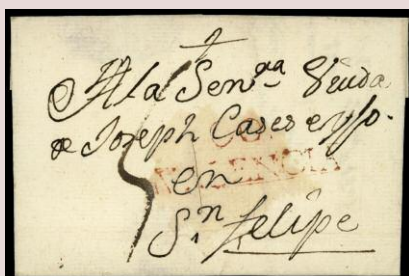 A la Sen.ra Viuda
de Joseph Cases e yjo.
VALENCIA
en
S.n Felipe